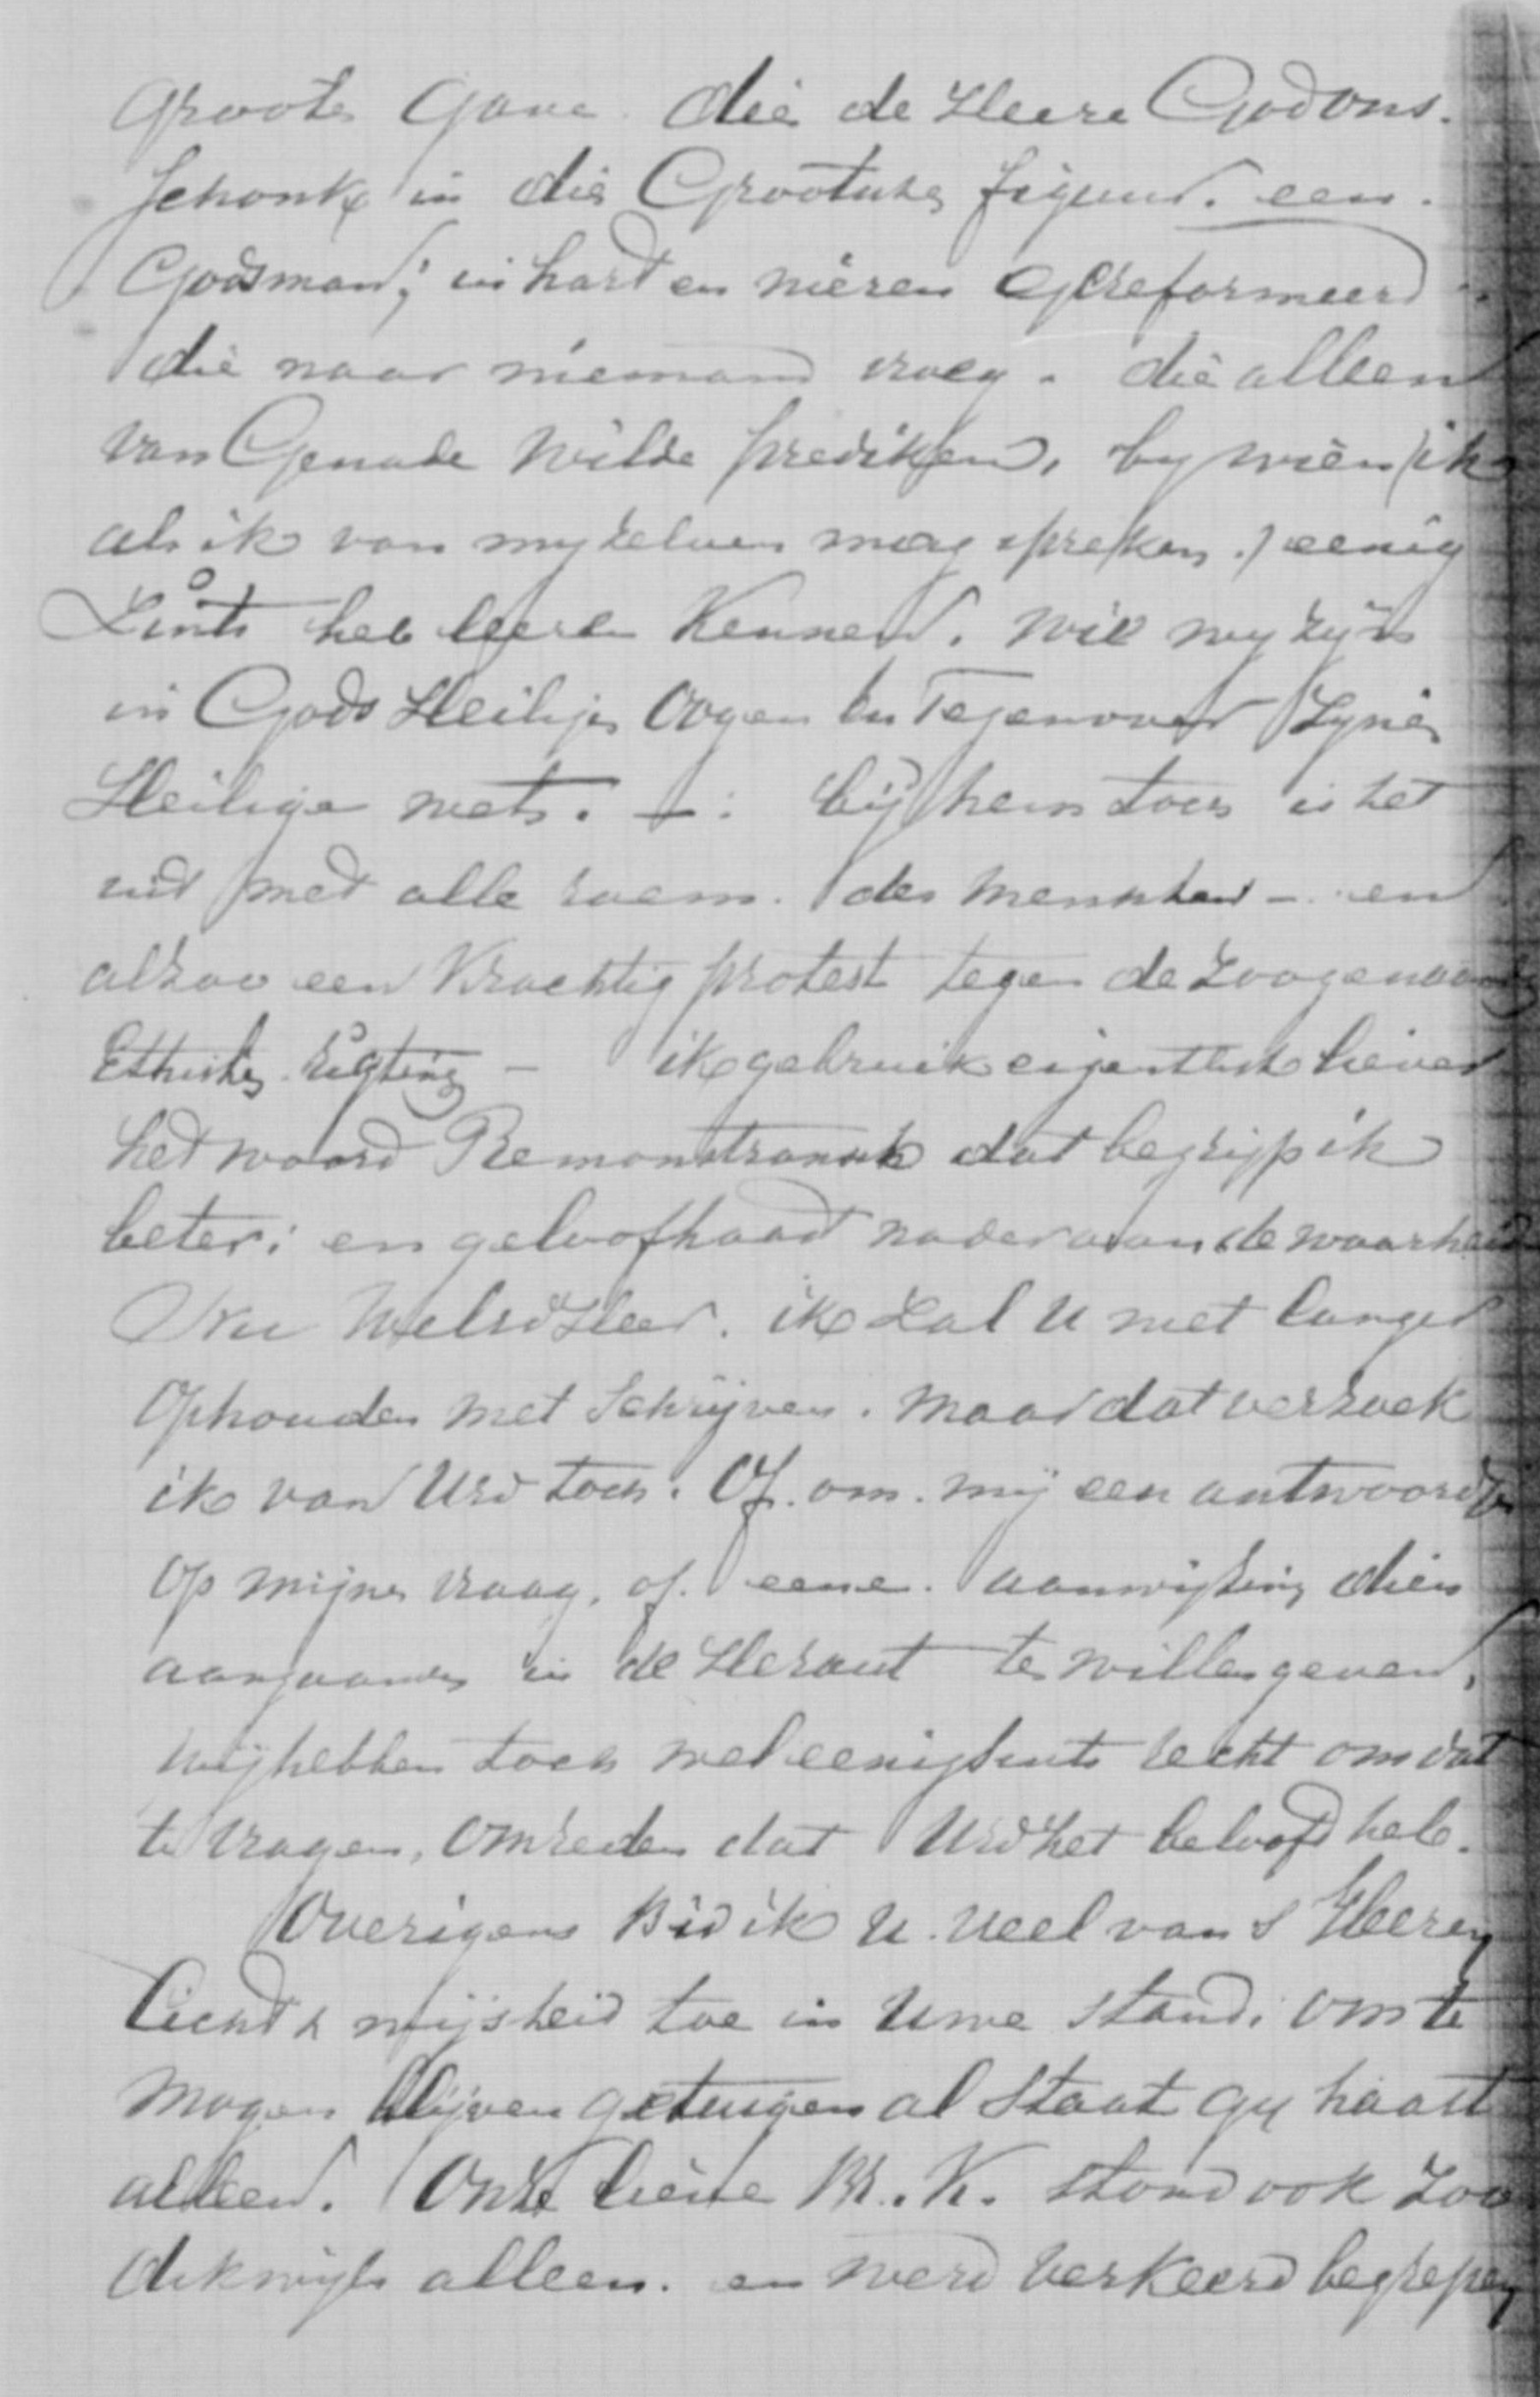 Groote Gave die de Heere God ons.
Schonk in die Grootsche figuur. een.
Godsman; in hart en nieren Gereformeerd
die naar niemand vroeg. die alleen
van Genade wilde prediken, by wien (ik
als ik van myzelven mag spreken.) eenig
Zints heb leeren Kennen. wie wy zyn
in Gods Heilige Oogen en Tegenover Zyne
Heilige wet. - : bij hem toch is het
uit met alle roem. des menschen - en
alzoo een Krachtig protest tegen de zoogenaamde
Ethische rigting - ik gebruik eigentlich liever
het woord Remonstransch dat begrijp ik
beter: en geloof haast nader aan de waarheid
Nu WelEdHeer. ik zal U niet langer
Ophouden met Schrijven. maar dat verzoek
ik van UEd toch: Of. om. mij een antwoord
op mijne vraag, of. eene. aanwijzing dien
aangaande in de Heraut te willen geven,
wij hebben toch wel eenigsints recht om dat
te vragen, Omreden dat UEd het beloofd heb.
Overigens Bid ik U. veel van s Heeren
Licht & wijsheid toe in Uwe stand; om te
mogen blijven getuigen al Staat gy haast
alleen. Onze lieve Br. K. stond ook zoo
dikwijls alleen. en werd verkeerd begrepen